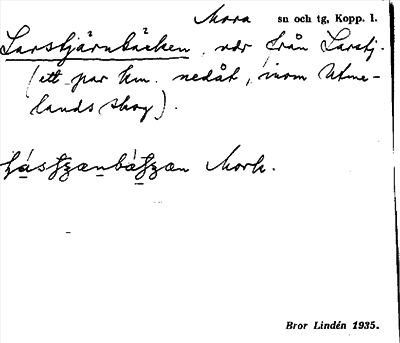 Mora sn och tg, Kopp. l.
Larstjärnbäcken, ndr från Larstj.
(ett par km. nedåt, inom Utme-
lands skog).
Mork.
Bror Lindén 1935.